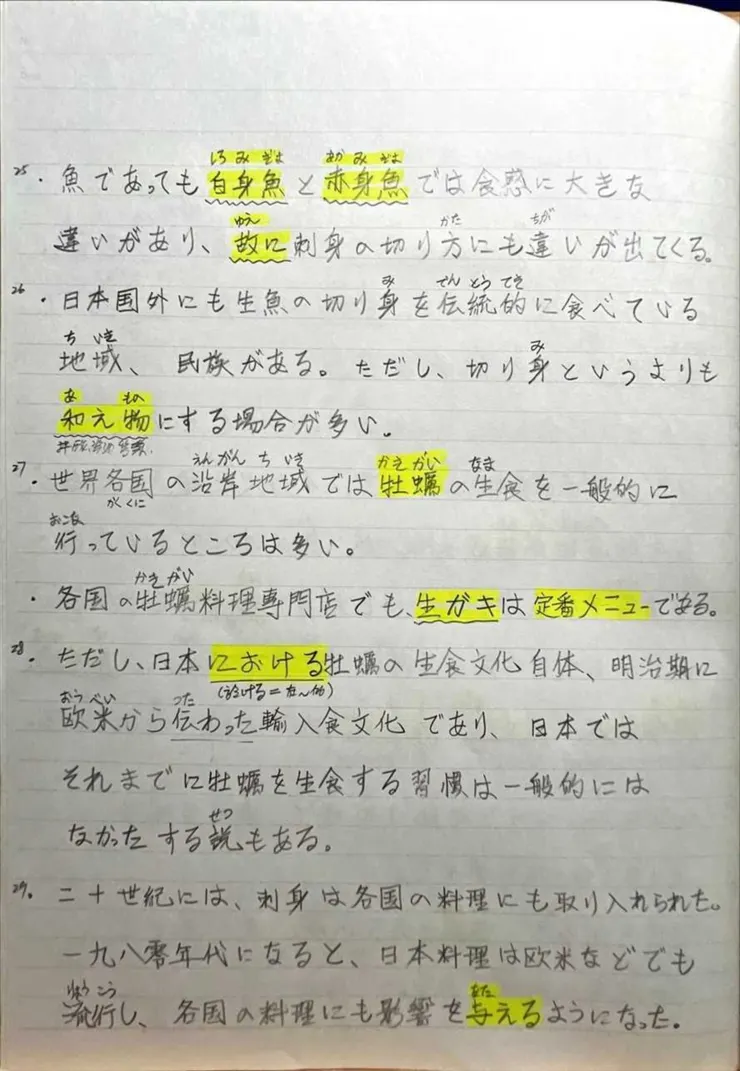 しろ み ざよ あか み ざよ
25. 魚であっても白身魚と赤身魚では食感に大きな
ゆえ かた ちが
違いがあり、故に刺身の切り方にも違いが出てくる。
み でん とう てき
26. 日本国外にも生魚の切り身を伝統的に食べている
ち いき み
地域、民族がある。ただし、切り身というよりも
あ もの
和え物にする場合が多い。
えん がん ち いき かき がい なま
27. 世界各国の沿岸地域では牡蠣の生食を一般的に
がくに
おこな
行っているところは多い。
かき がい
・各国の牡蠣料理専門店でも、生ガキは定番メニューである。
28. ただし、日本における牡蠣の生食文化自体、明治期に
(於ける=在~的)
おう べい つた
欧米から伝わった輸入食文化であり、日本では
それまでに牡蠣を生食する習慣は一般的には
せつ
なかったする説もある。
29. 二十世紀には、刺身は各国の料理にも取り入れられた。
一九八零年代になると、日本料理は欧米などでも
りゅう こう あた
流行し、各国の料理にも影響を与えるようになった。